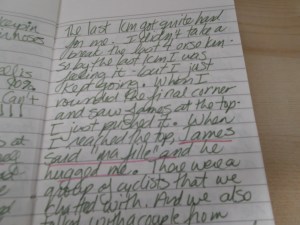 the last km got quite hard
for me. I didn't take a
break the last 4 or so km.
So by the last km I was
feeling it - but I just
kept going. When I
rounded the final corner
and saw James at the top.
I just pushed it. When
I reached the top, James
said "ma fille" and he
hugged me. There were a
group of cyclists that we
chatted with. And we also
talked with a couple from
90%
can't